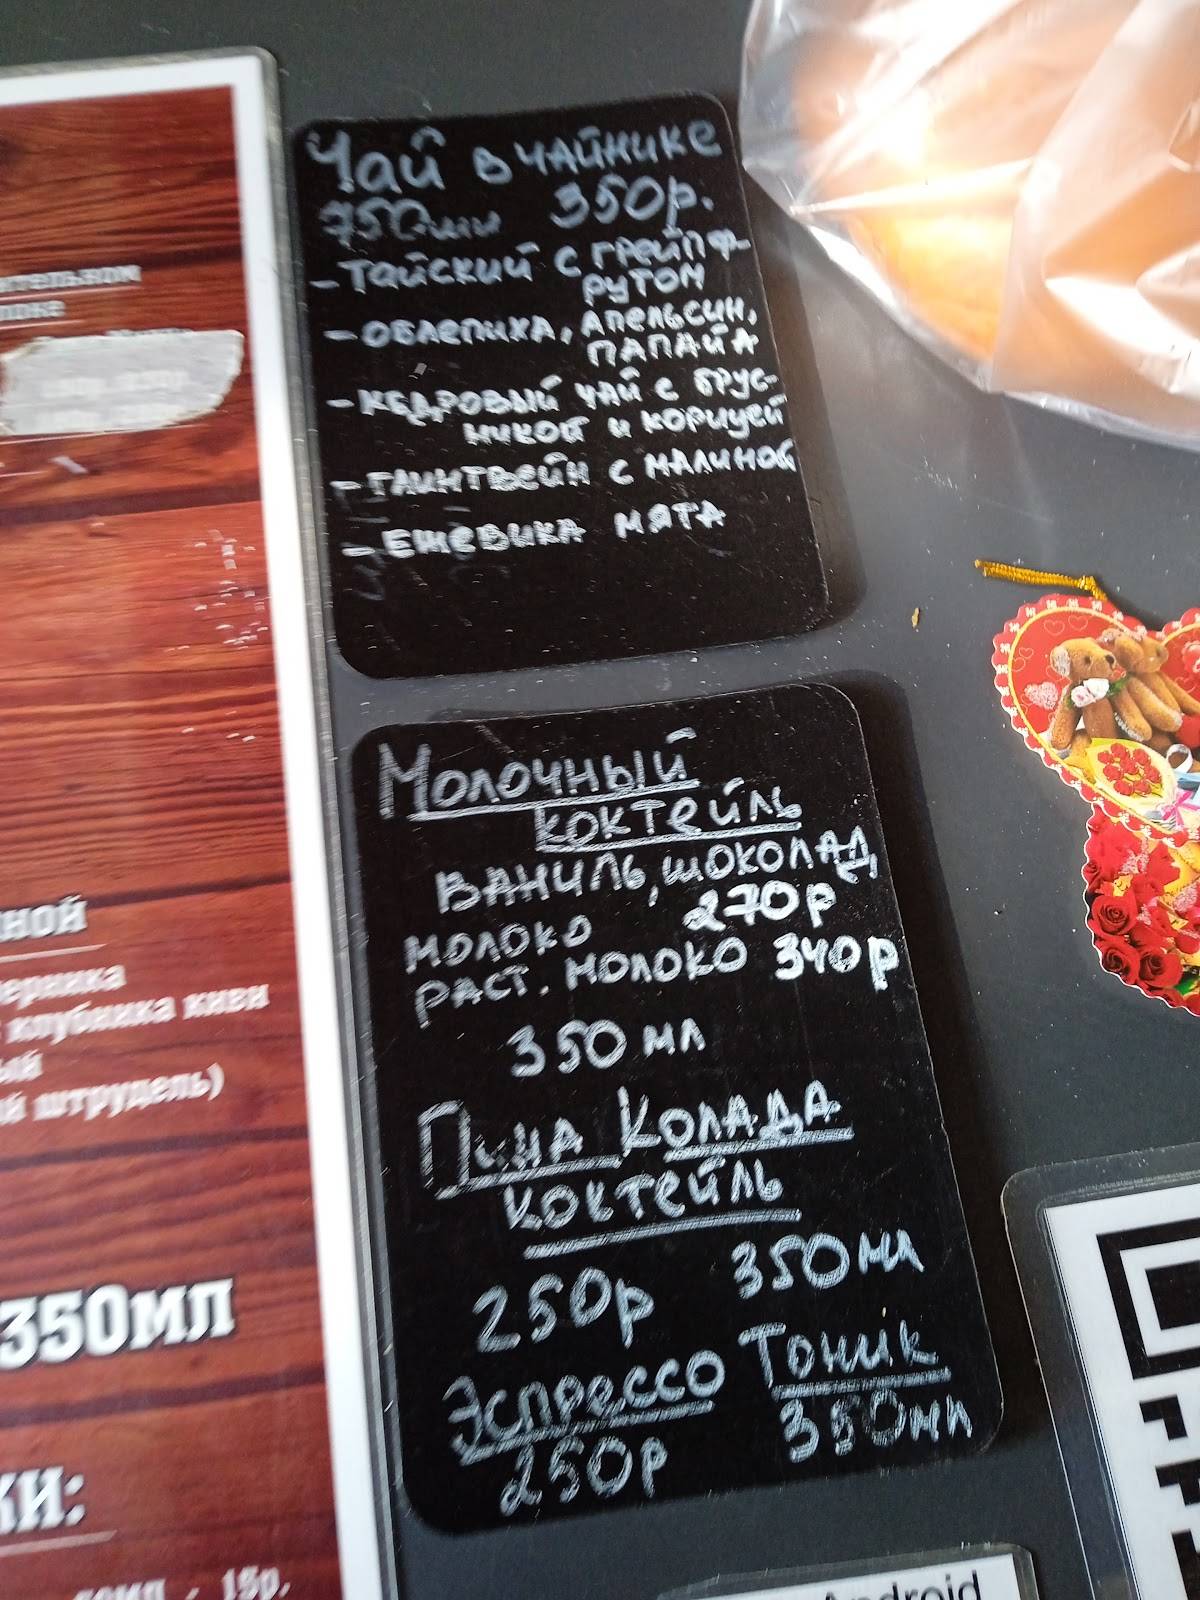 Чай в чайнике
750мл 350р.
- Тайский с грейпф-
рутом
- облепиха, апельсин,
папайя
- кедровый чай с брус-
никой и корицей
- глинтвейн с малиной
- ежевика мята
Молочный
коктейль
ваниль, шоколад
молоко 270р
раст. молоко 340р
350 мл
Пина Колада
коктейль
250р 350мл
Эспрессо Тоник
250р 350мл
ительном
ной
ерника
клубника киви
ый
й штрудель)
350мл
ки:
15р.
Android